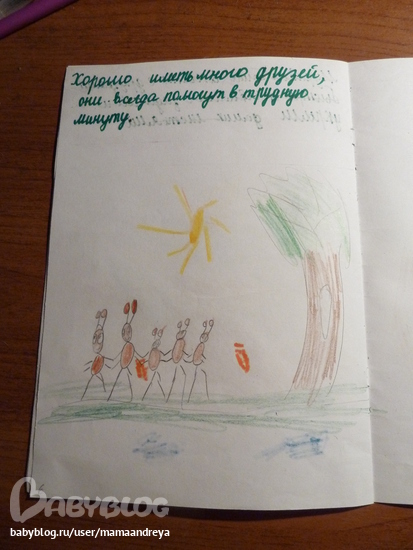 Хорошо иметь много друзей,
они всегда помогут в трудную
минуту.
BABYBLOG
babyblog.ru/user/mamaandreya